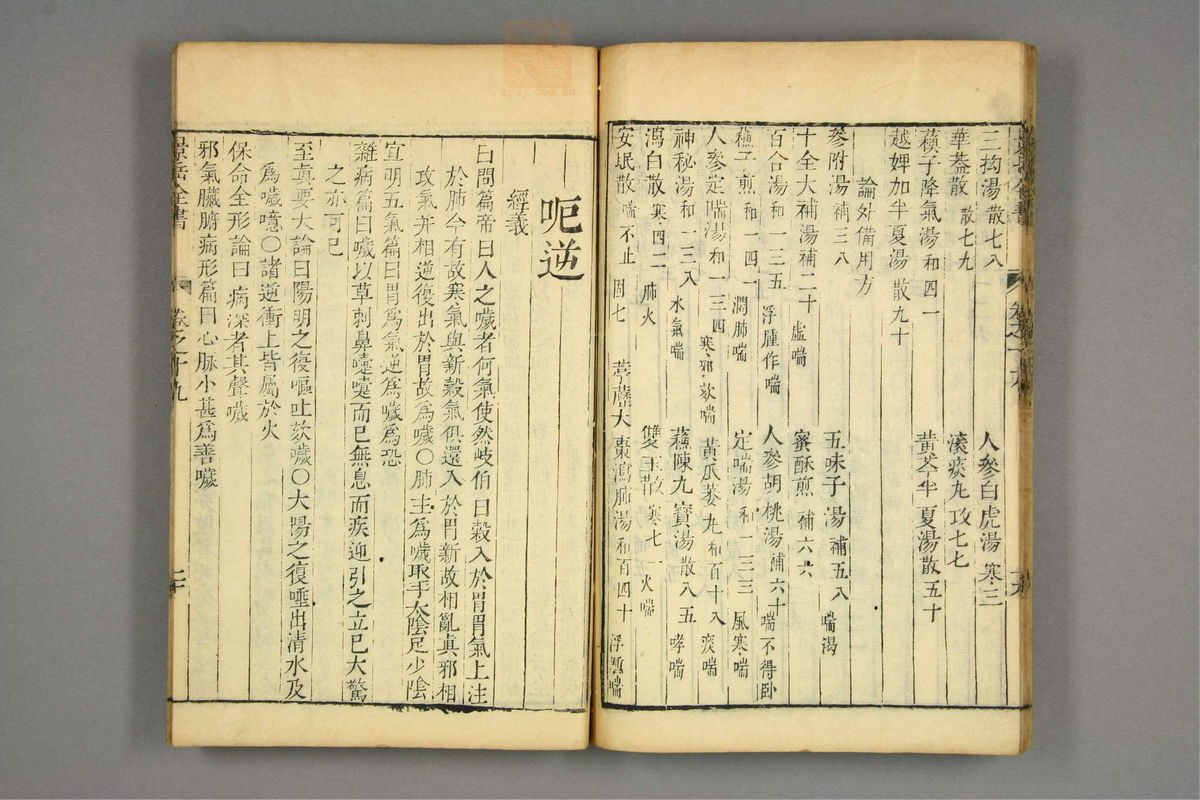 三拗湯 散七八 人參白虎湯 寒三
華蓋散 散七九 滚痰丸 攻七七
蘇子降氣湯 和四一 黃芩半夏湯 散五十
越婢加半夏湯 散九十
論外備用方
參附湯 補三八 五味子湯 補五八 喘渴
十全大補湯 補二十 虛喘 蜜酥煎 補六六
百合湯 和一三五 浮腫作喘 人參胡桃湯 補六十 喘不得卧
蘇子煎 和一四一 潤肺喘 定喘湯 和一三三 風寒喘
人參定喘湯 和一三四 寒邪欬喘 黃瓜蔞丸 和百十八 痰喘
神秘湯 和一三八 水氣喘 蘇陳九寶湯 散八五 哮喘
瀉白散 寒四二 肺火 雙玉散 寒七一 火喘
安眠散 喘不止 固七 葶藶大棗瀉肺湯 和百四十 浮腫喘
呃逆
經義
口問篇帝曰人之噦者何氣使然岐伯曰穀入於胃胃氣上注
於肺今有故寒氣與新穀氣俱還入於胃新故相亂眞邪相
攻氣并相逆復出於胃故爲噦○肺主爲噦取手太陰足少陰
宣明五氣篇曰胃爲氣逆爲噦爲恐
雜病篇曰噦以草刺鼻嚏嚏而已無息而疾迎引之立已大驚
之亦可已
至眞要大論曰陽明之復嘔吐欬噦○太陽之復唾出清水及
爲噦噫○諸逆衝上皆屬於火
保命全形論曰病深者其聲噦
邪氣臟腑病形篇曰心脉小甚爲善噦
景岳全書
卷之十九